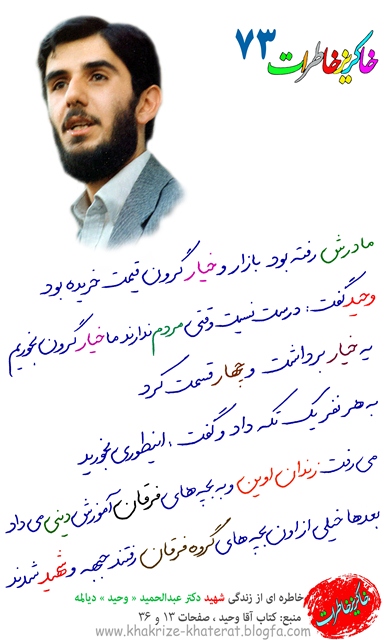 خاکریز خاطرات ۷۳
مادرش رفته بود بازار و خیار گرون قیمت خریده بود
وحید گفت: درست نیست وقتی مردم ندارند ما خیار گرون بخوریم
یه خیار برداشت و چهار قسمت کرد
به هر نفر یک تکه داد و گفت: اینطوری بخورید
می رفت زندان اوین و به بچه های فرقان آموزش دینی می داد
بعدها خیلی از اون بچه های گروه فرقان رفتند جبهه و شهید شدند
خاطره ای از زندگی شهید دکتر عبدالحمید « وحید » دیالمه
منبع: کتاب آقا وحید ، صفحات ۱۳ و ۳۶
www.khakrize-khaterat.blogfa.com
خاکریز خاطرات